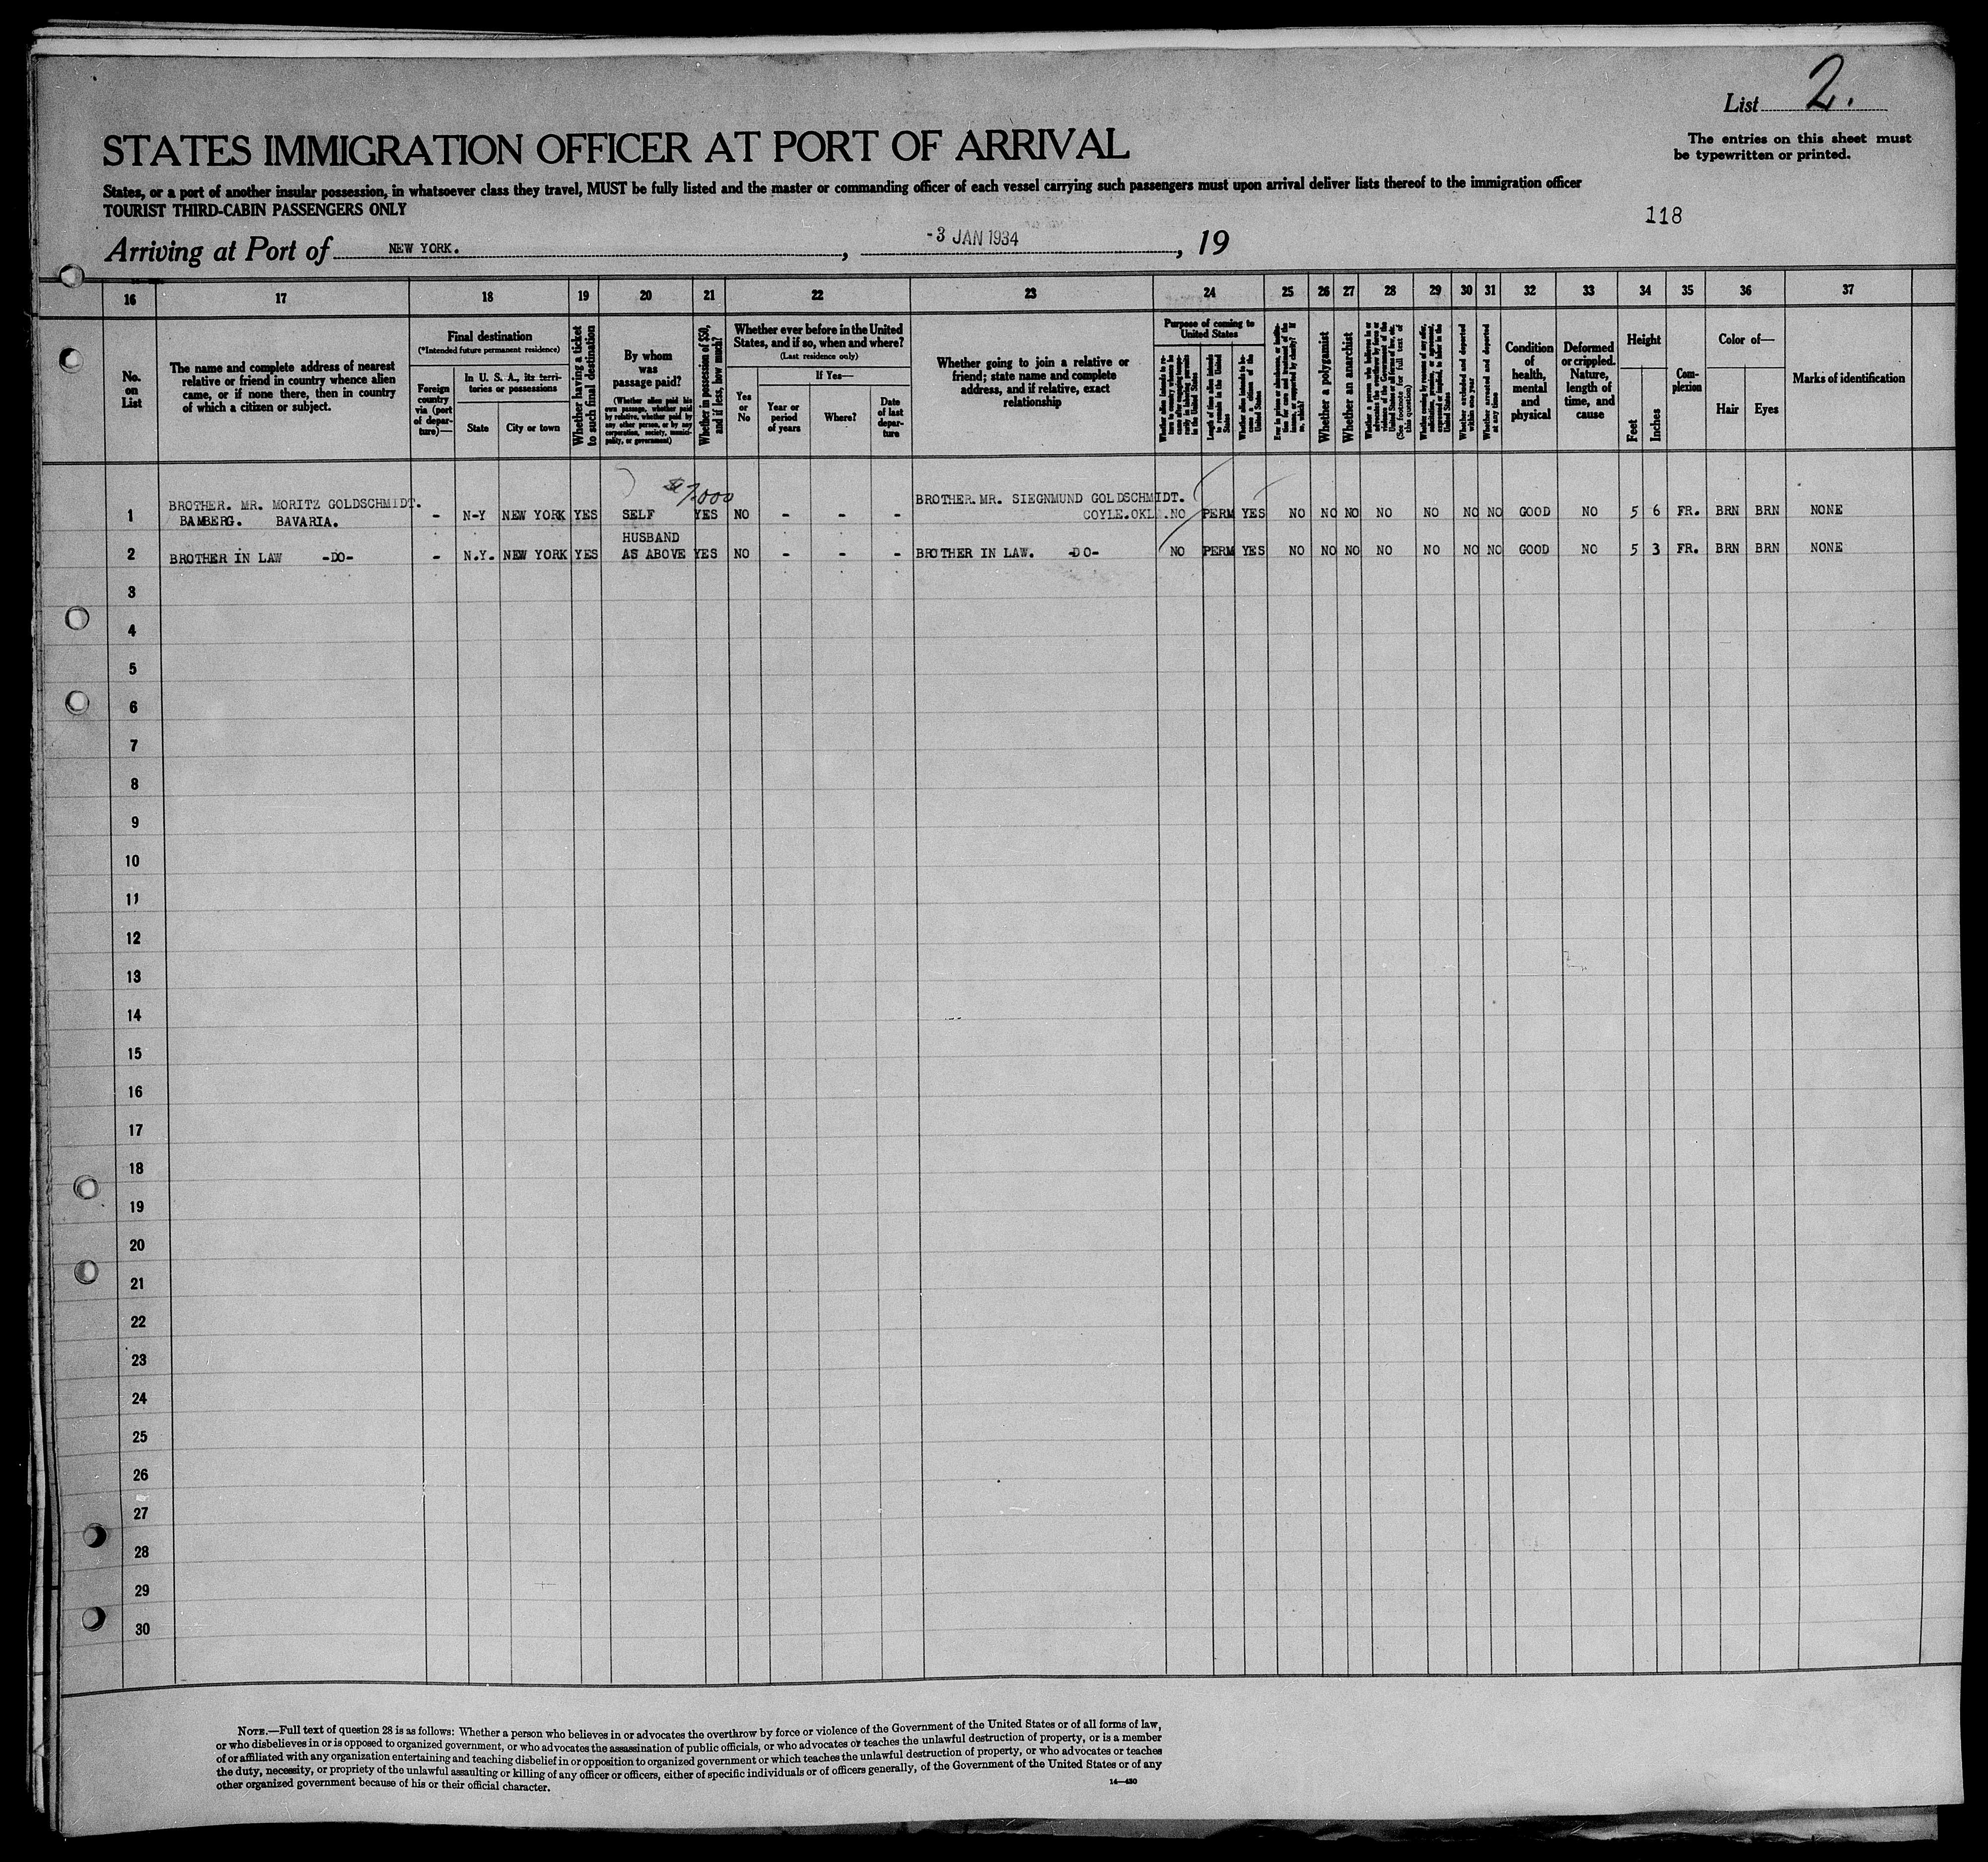 List 2.
The entries on this sheet must
be typewritten or printed.
STATES IMMIGRATION OFFICER AT PORT OF ARRIVAL
States, or a port of another insular possession, in whatsoever class they travel, MUST be fully listed and the master or commanding officer of each vessel carrying such passengers must upon arrival deliver lists thereof to the immigration officer
TOURIST THIRD-CABIN PASSENGERS ONLY
118
Arriving at Port of NEW YORK. , -3 JAN 1934 , 19
16 17 18 19 20 21 22 23 24 25 26 27 28 29 30 31 32 33 34 35 36 37
No.
on
List
The name and complete address of nearest
relative or friend in country whence alien
came, or if none there, then in country
of which a citizen or subject.
Final destination
(*Intended future permanent residence)
Foreign
country
via (port
of depar-
ture)—
In U. S. A., its terri-
tories or possessions
State
City or town
Whether having a ticket
to such final destination
By whom
was
passage paid?
(Whether alien paid his
own passage, whether paid
by relative, whether paid by
any other person, or by any
corporation, society, munici-
pality, or government)
Whether in possession of $50,
and if less, how much?
Whether ever before in the United
States, and if so, when and where?
(Last residence only)
Yes
or
No
If Yes—
Year or
period
of years
Where?
Date
of last
depar-
ture
Whether going to join a relative or
friend; state name and complete
address, and if relative, exact
relationship
Purpose of coming to
United States
Length of time alien intends
to remain in the United
States
Whether alien intends to be-
come a citizen of the
United States
Whether a polygamist
Whether an anarchist
(See footnote for full text of
this question)
Whether arrested and deported
within one year
Whether arrested and deported
at any time
Condition
of
health,
mental
and
physical
Deformed
or crippled.
Nature,
length of
time, and
cause
Height
Feet
Inches
Com-
plexion
Color of—
Hair
Eyes
Marks of identification
$7,000
BROTHER. MR. MORITZ GOLDSCHMIDT. BROTHER.MR. SIEGNMUND GOLDSCHMIDT.
1 BAMBERG. BAVARIA. - N-Y NEW YORK YES SELF YES NO - - - COYLE.OKL.NO PERM YES NO NO NO NO NO NO NO GOOD NO 5 6 FR. BRN BRN NONE
HUSBAND
2 BROTHER IN LAW -DO- - N.Y. NEW YORK YES AS ABOVE YES NO - - - BROTHER IN LAW. -DO- NO PERM YES NO NO NO NO NO NO NO GOOD NO 5 3 FR. BRN BRN NONE
3
4
5
6
7
8
9
10
11
12
13
14
15
16
17
18
19
20
21
22
23
24
25
26
27
28
29
30
NOTE.—Full text of question 28 is as follows: Whether a person who believes in or advocates the overthrow by force or violence of the Government of the United States or of all forms of law,
or who disbelieves in or is opposed to organized government, or who advocates the assassination of public officials, or who advocates or teaches the unlawful destruction of property, or is a member
of or affiliated with any organization entertaining and teaching disbelief in or opposition to organized government or which teaches the unlawful destruction of property, or who advocates or teaches
the duty, necessity, or propriety of the unlawful assaulting or killing of any officer or officers, either of specific individuals or of officers generally, of the Government of the United States or of any
other organized government because of his or their official character.
14—430